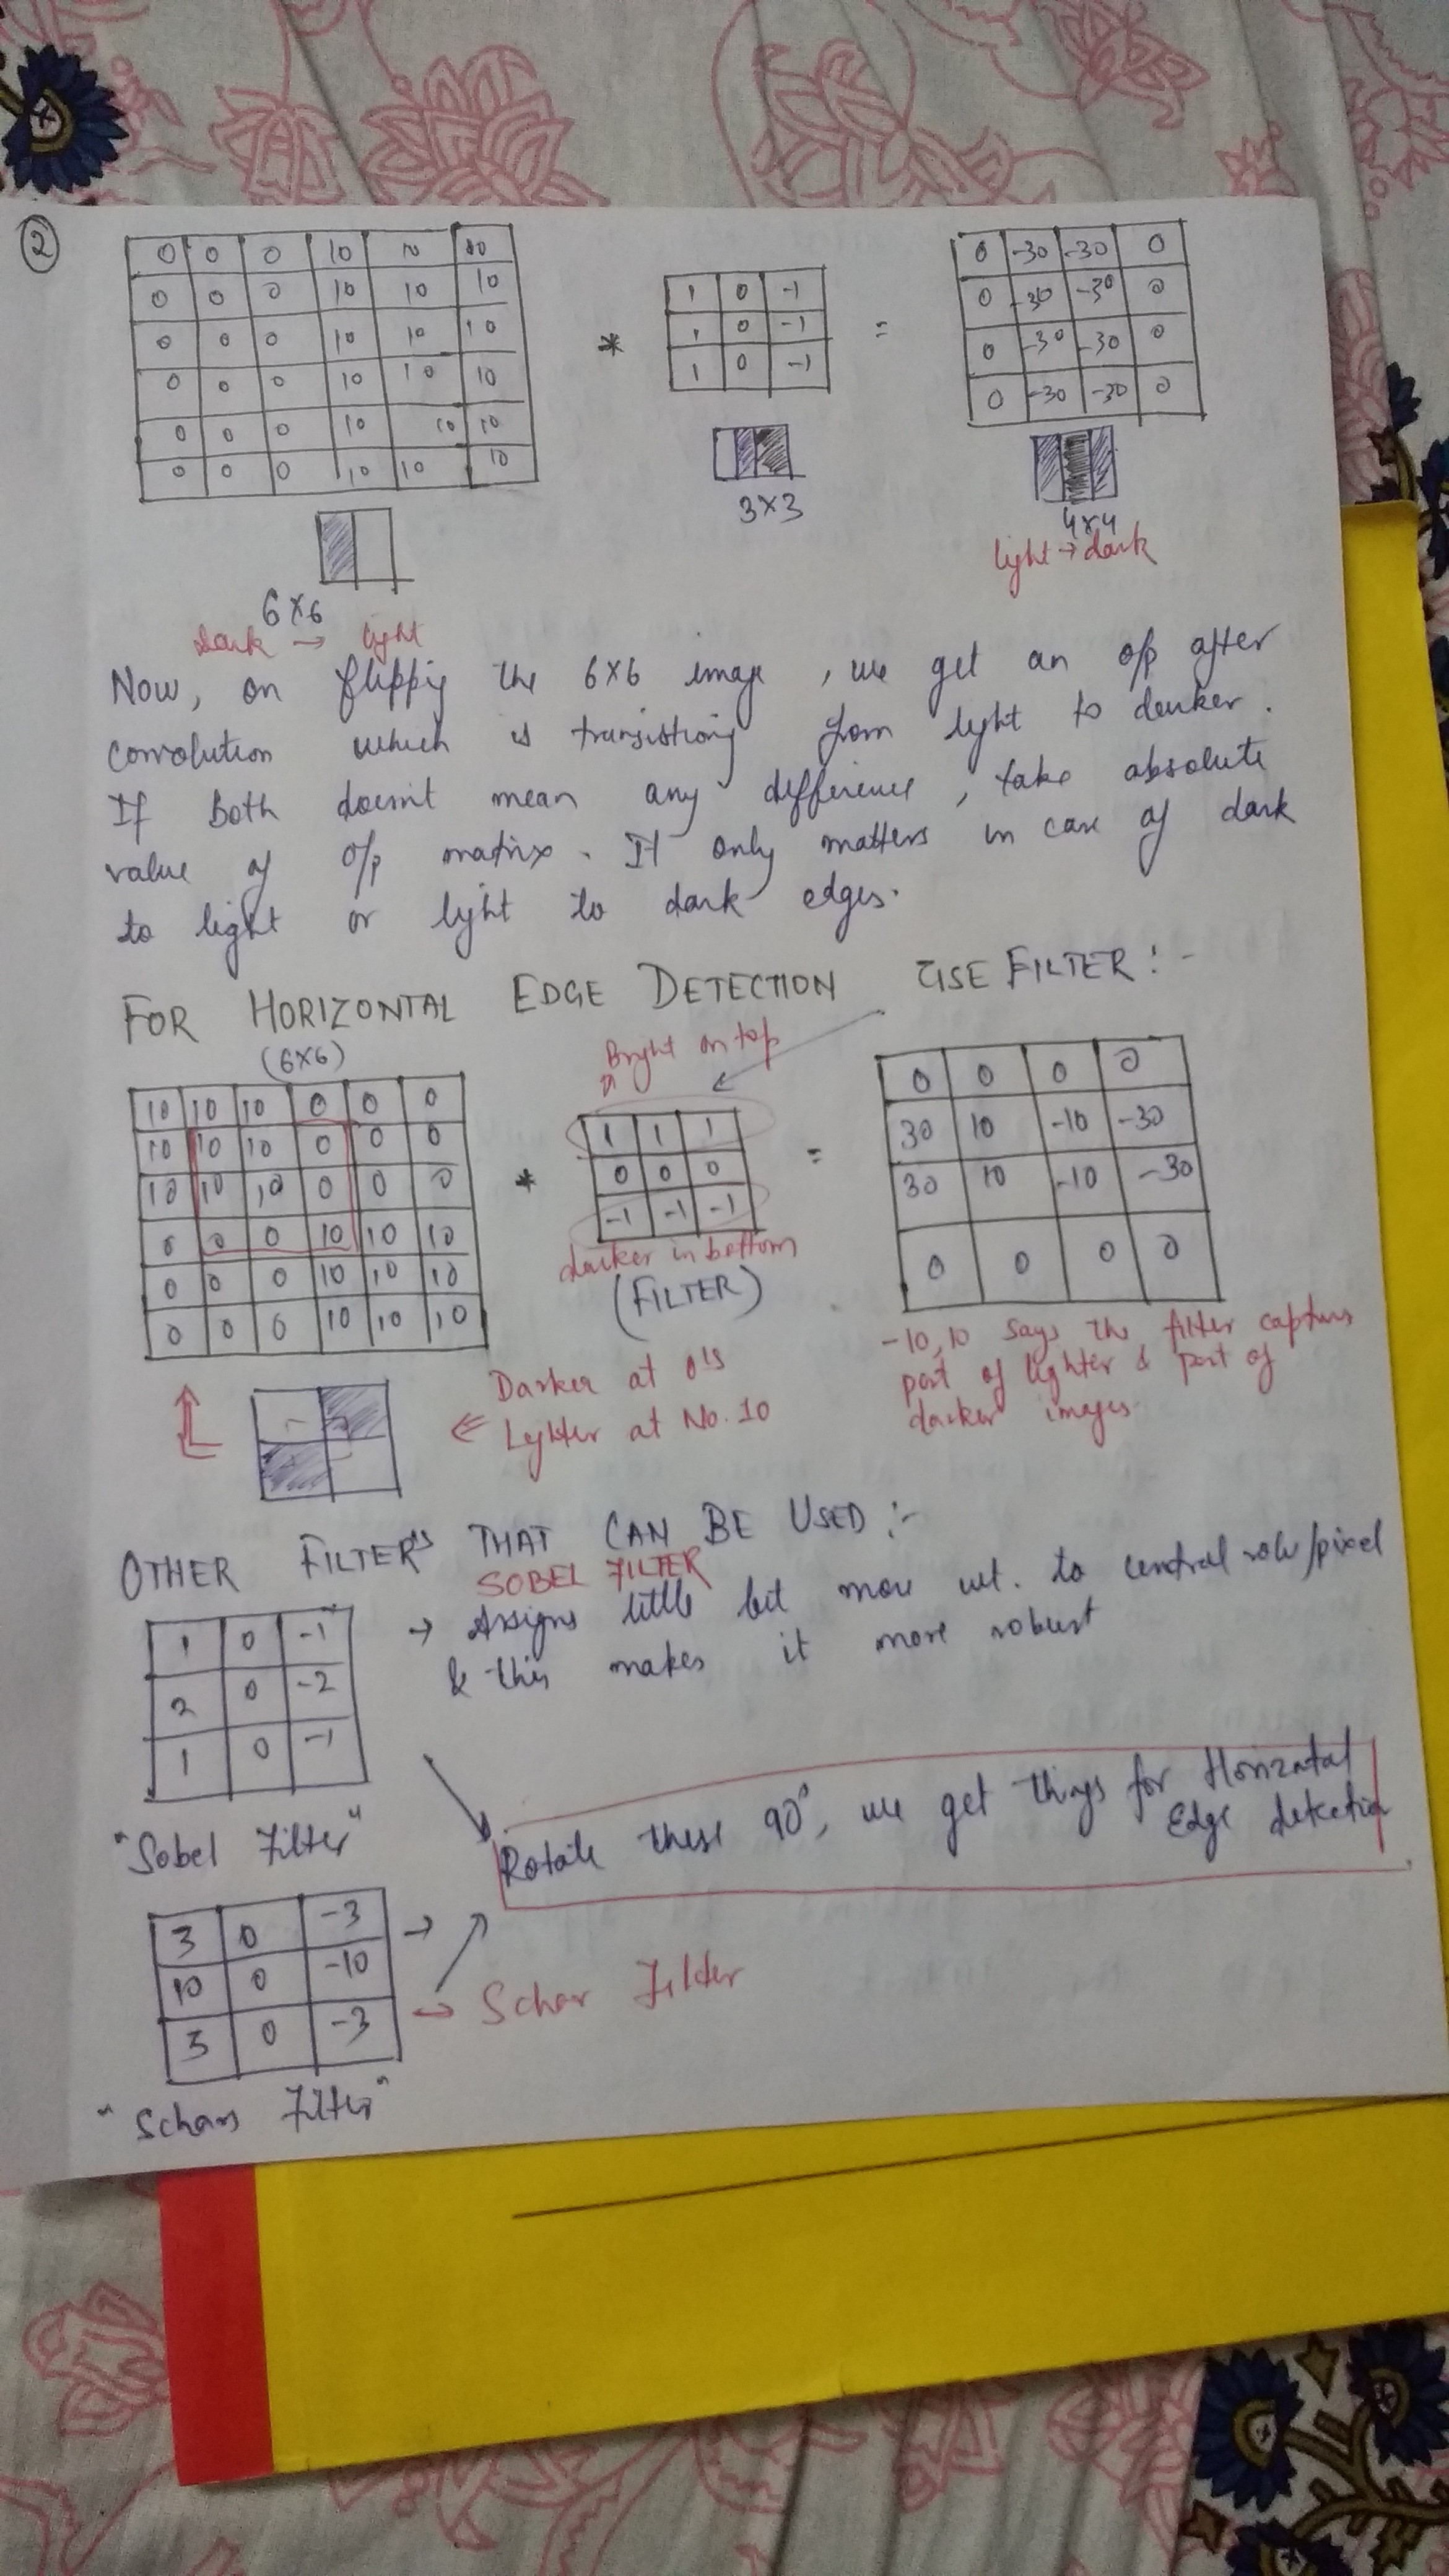 2
0 0 0 10 10 10
0 0 0 10 10 10
0 0 0 10 10 10
0 0 0 10 10 10
0 0 0 10 10 10
0 0 0 10 10 10
6x6
dark → light
*
1 0 -1
1 0 -1
1 0 -1
3x3
=
0 -30 -30 0
0 -30 -30 0
0 -30 -30 0
0 -30 -30 0
4x4
light → dark
Now, on flippig the 6x6 image, we get an o/p after
convolution which is transistiong from light to darker.
If both doesn't mean any difference, take absolute
value of o/p matrix. It only matters in case of dark
to light or light to dark edges.
FOR HORIZONTAL EDGE DETECTION USE FILTER:-
(6x6)
10 10 10 0 0 0
10 10 10 0 0 0
10 10 10 0 0 0
0 0 0 10 10 10
0 0 0 10 10 10
0 0 0 10 10 10
*
Bright on top
1 1 1
0 0 0
-1 -1 -1
darker in bottom
(FILTER)
=
0 0 0 0
30 10 -10 -30
30 10 -10 -30
0 0 0 0
-10, 10 says the filter capturs
part of lighter & part of
darker images
Darker at 0's
⇐ Lighter at No. 10
OTHER FILTER'S THAT CAN BE USED:-
SOBEL FILTER
1 0 -1
2 0 -2
1 0 -1
"Sobel Filter"
→ Assigns little bit more wt. to central row/pixel
& this makes it more robust
Rotate these 90°, we get things for Horizntal
Edge detection
3 0 -3
10 0 -10
3 0 -3
→
→ Schar Filder
"Schars Filter"